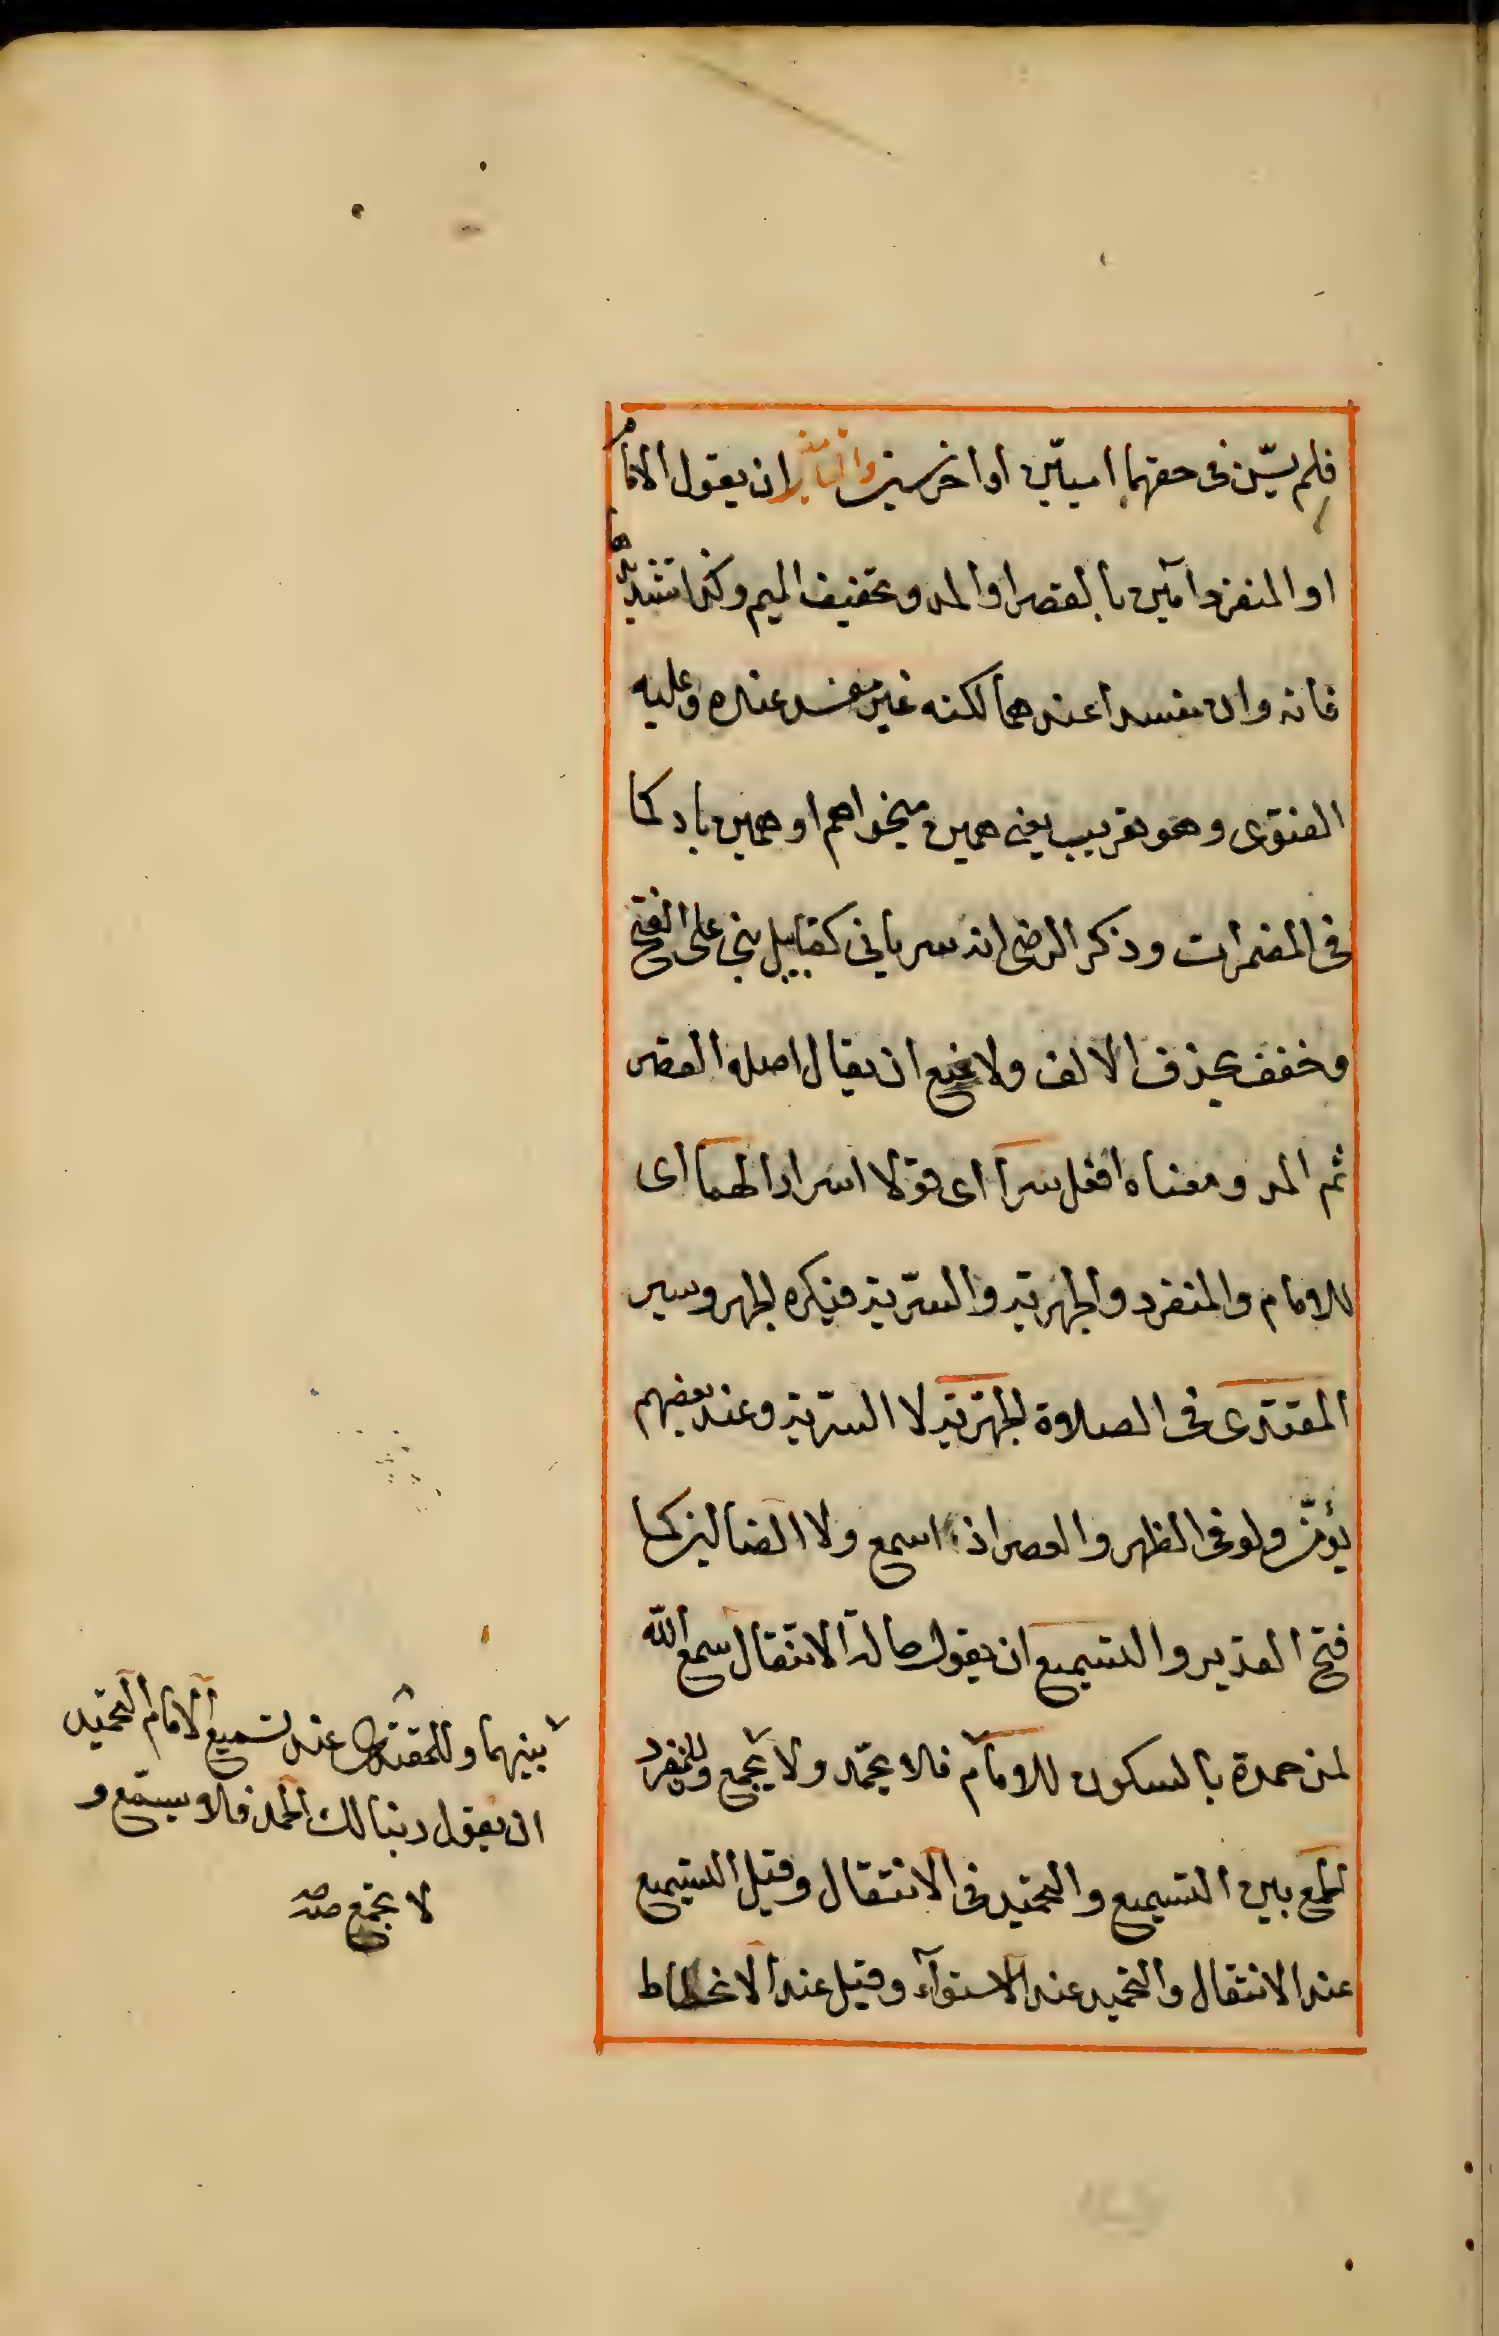 فلم يسن فى حقهما اميين او اخرسين والتامين ان يقول الامام
او المنفرد آمين بالقصر او المد وتخفيف الميم وكذا تشديدها
فانه وان فسدا عندهما لكنه غير مفسد عنده وعليه
الفتوى وهو تعريب يعنى همين ميخواهم او همين باد كما
فى المضمرات وذكر الرضى انه سريانى كقابيل بنى على الفتح
وخفف بحذف الالف ولا يمنع ان يقال اصله القصر
ثم المد ومعناه افعل سرا اى قولا اسرارا لهما اى
للامام والمنفرد والجهرية والسرية فيكره الجهر وسير
المقتدى فى الصلاوة الجهرية لا السرية وعند بعضهم
يؤمن ولو فى الظهر والعصر اذا سمع ولا الضالين كما
فتح القدير والتسميع ان يقول حالة الانتقال سمع الله
لمن حمدة بالسكون للامام فلا يحمد ولا يجمع وللمنفرد
الجمع بين التسميع والتحميد فى الانتقال وقيل التسميع
عند الانتقال والتحميد عند الاستوآء وقيل عند الانحطاط
بينهما وللمقتدى عند تسميع الامام التحميد
ان يقول ربنا لك الحمد فلا يسمع و
لا يجمع صح